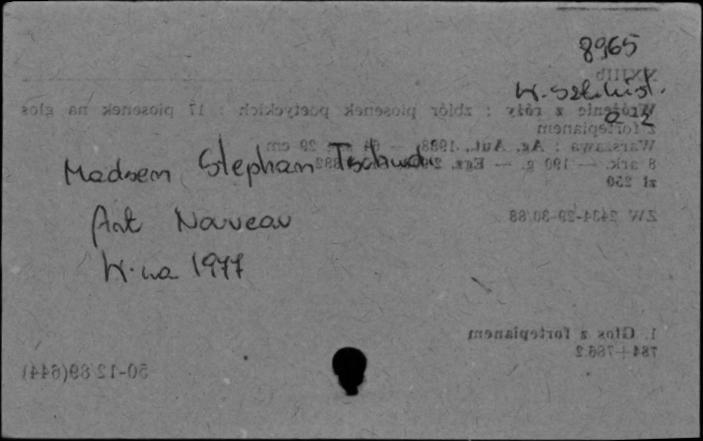 8965
H. szt. hist.
a 2
Madsem Stephan Tschudi
Art Nouveau
W-wa 1977
XXIIIb
Wróżenie z róży : zbiór piosenek poetyckich : 17 piosenek na głos
z fortepianem
Warszawa : Ag. Aut., 1988. — 29 cm
8 ark. — 190 g. — Egz.
zł 250
ZW 2434-29-30/88
1. Głos z fortepianem
784+786.2
50-12 89(644)